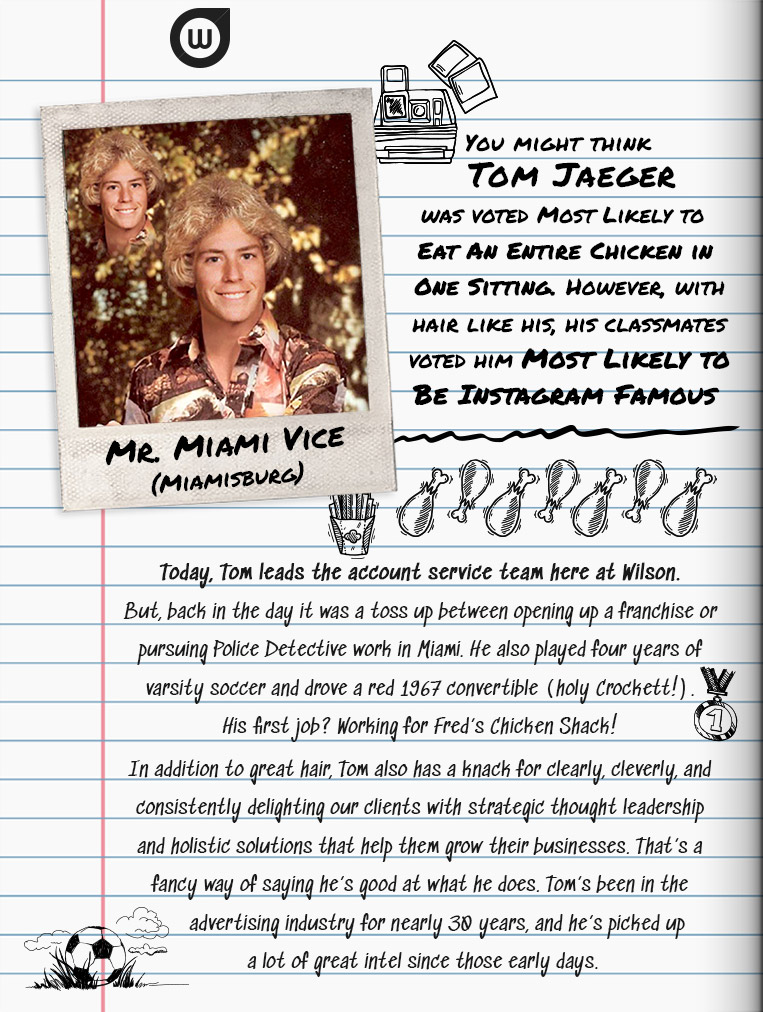 W
You might think
Tom Jaeger
was voted Most Likely to
Eat An Entire Chicken in
One Sitting. However, with
hair like his, his classmates
voted him Most Likely to
Be Instagram Famous
Mr. Miami Vice
(Miamisburg)
Today, Tom leads the account service team here at Wilson.
But, back in the day it was a toss up between opening up a franchise or
pursuing Police Detective work in Miami. He also played four years of
varsity soccer and drove a red 1967 convertible (holy Crockett!).
1
His first job? Working for Fred's Chicken Shack!
In addition to great hair, Tom also has a knack for clearly, cleverly, and
consistently delighting our clients with strategic thought leadership
and holistic solutions that help them grow their businesses. That's a
fancy way of saying he's good at what he does. Tom's been in the
advertising industry for nearly 30 years, and he's picked up
a lot of great intel since those early days.